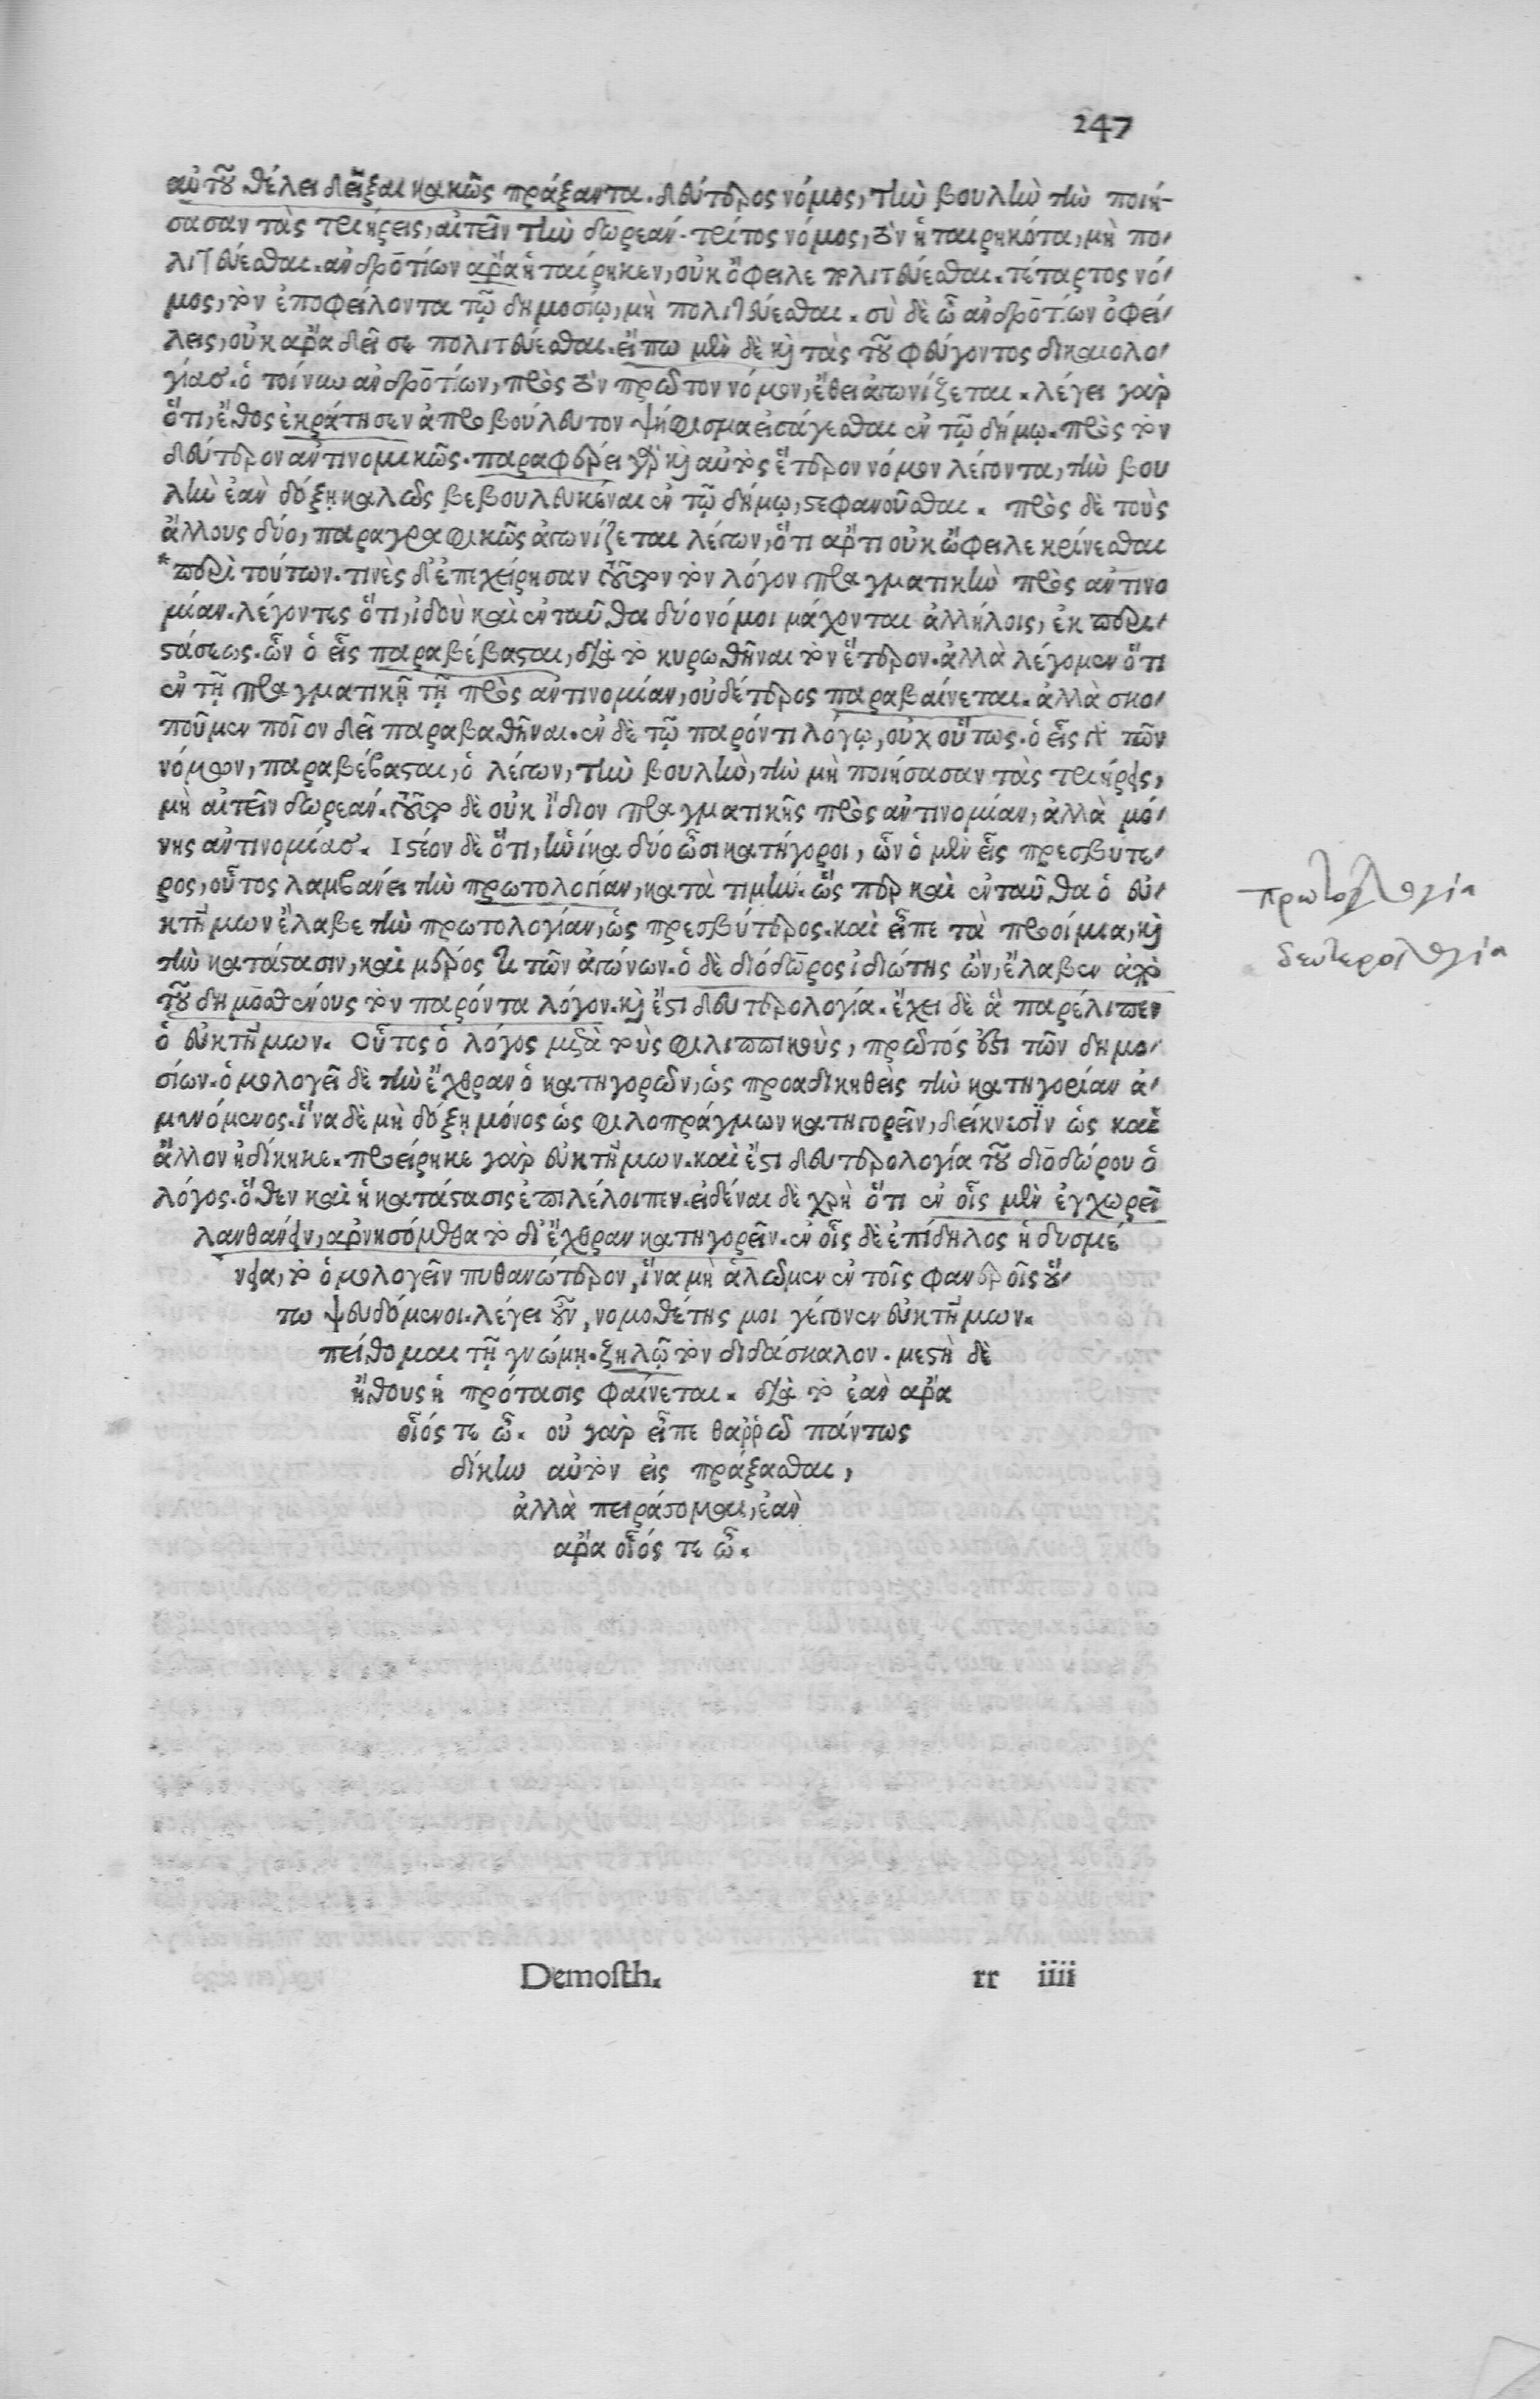 247
αὐτοῦ θέλει δεῖξαι κακῶς πράξαντα. δεύτερος νόμος, τὴν βουλὴν τὴν ποιή-
σασαν τὰς τριήρεις, αἰτεῖν τὴν δωρεάν. τρίτος νόμος, τὸν ἡταιρηκότα, μὴ πο-
λιτεύεσθαι. ἀνδροτίων ἄρα ἡταίρηκεν, οὐκ ὄφειλε πολιτεύεσθαι. τέταρτος νό-
μος, τὸν ἐποφείλοντα τῷ δημοσίῳ, μὴ πολιτεύεσθαι. σὺ δὲ ὦ ἀνδροτίων ὀφεί-
λεις, οὐκ ἄρα δεῖ σε πολιτεύεσθαι. εἴπω μὲν δὲ καὶ τὰς τοῦ φεύγοντος δικαιολο-
γίας. ὁ τοίνυν ἀνδροτίων, πρὸς τὸν πρῶτον νόμον, ἔθει ἀγωνίζεται. λέγει γὰρ
ὅτι, ἔθος ἐκράτησεν ἀπροβούλευτον ψήφισμα εἰσάγεσθαι ἐν τῷ δήμῳ. πρὸς τὸν
δεύτερον ἀντινομικῶς. παραφέρει γὰρ καὶ αὐτὸς ἕτερον νόμον λέγοντα, τὴν βου
λὴν ἐὰν δόξῃ καλῶς βεβουλευκέναι ἐν τῷ δήμῳ, στεφανοῦσθαι. πρὸς δὲ τοὺς
ἄλλους δύο, παραγραφικῶς ἀγωνίζεται λέγων, ὅτι ἄρτι οὐκ ὤφειλε κρίνεσθαι
*περὶ τούτων. τινὲς δ' ἐπεχείρησαν τοῦτον τὸν λόγον πραγματικὴν πρὸς ἀντινο
μίαν. λέγοντες ὅτι, ἰδοὺ καὶ ἐνταῦθα δύο νόμοι μάχονται ἀλλήλοις, ἐκ περι-
στάσεως. ὧν ὁ εἷς παραβέβασται, διὰ τὸ κυρωθῆναι τὸν ἕτερον. ἀλλὰ λέγομεν ὅτι
ἐν τῇ πραγματικῇ τῇ πρὸς ἀντινομίαν, οὐδέτερος παραβαίνεται. ἀλλὰ σκο-
ποῦμεν ποῖον δεῖ παραβαθῆναι. ἐν δὲ τῷ παρόντι λόγῳ, οὐχ οὕτως. ὁ εἷς γὰρ τῶν
νόμων, παραβέβασται, ὁ λέγων, τὴν βουλὴν, τὴν μὴ ποιήσασαν τὰς τριήρεις,
μὴ αἰτεῖν δωρεάν. τοῦτο δὲ οὐκ ἴδιον πραγματικῆς πρὸς ἀντινομίαν, ἀλλὰ μό-
νης ἀντινομίας. Ἰστέον δὲ ὅτι, ἡνίκα δύο ὦσι κατήγοροι, ὧν ὁ μὲν εἷς πρεσβυτε-
ρος, οὗτος λαμβάνει τὴν πρωτολογίαν, κατὰ τιμήν. ὥς περ καὶ ἐνταῦθα ὁ εὐ-
κτήμων ἔλαβε τὴν πρωτολογίαν, ὡς πρεσβύτερος. καὶ εἶπε τὰ προοίμια, καὶ
τὴν κατάστασιν, καὶ μέρος τι τῶν ἀγώνων. ὁ δὲ διόδωρος ἰδιώτης ὢν, ἔλαβεν ἀπὸ
τοῦ δημοσθένους τὸν παρόντα λόγον. καὶ ἔστι δευτερολογία. ἔχει δὲ ἃ παρέλιπεν
ὁ εὐκτήμων. Οὗτος ὁ λόγος μετὰ τοὺς φιλιππικοὺς, πρῶτός ἐστι τῶν δημο-
σίων. ὁμολογεῖ δὲ τὴν ἔχθραν ὁ κατηγορῶν, ὡς προαδικηθεὶς τὴν κατηγορίαν ἀ-
μυνόμενος. ἵνα δὲ μὴ δόξῃ μόνος ὡς φιλοπράγμων κατηγορεῖν, δείκνυσιν ὡς καὶ
ἄλλον ἠδίκηκε. προείρηκε γὰρ εὐκτήμων. καὶ ἔστι δευτερολογία τοῦ διοδώρου ὁ
λόγος. ὅθεν καὶ ἡ κατάστασις ἐπιλέλοιπεν. εἰδέναι δὲ χρὴ ὅτι ἐν οἷς μὲν ἐγχωρεῖ
λανθάνειν, ἀρνησόμεθα τὸ δι' ἔχθραν κατηγορεῖν. ἐν οἷς δὲ ἐπίδηλος ἡ δυσμέ
νεια, τὸ ὁμολογεῖν πιθανώτερον, ἵνα μὴ ἁλῶμεν ἐν τοῖς φανεροῖς οὕ-
τω ψευδόμενοι. λέγει οὖν, νομοθέτης μοι γέγονεν εὐκτήμων.
πείθομαι τῇ γνώμῃ. ζηλῶ τὸν διδάσκαλον. μεστὴ δὲ
ἤθους ἡ πρότασις φαίνεται. διὰ τὸ ἐὰν ἄρα
οἷός τε ὦ. οὐ γὰρ εἶπε θαῤῥῶ πάντως
δίκην αὐτὸν εἰς πράξασθαι,
ἀλλὰ πειράσομαι, ἐὰν
ἄρα οἷός τε ὦ.
πρωτολογία
δευτερολογία
Demosth. rr iiii